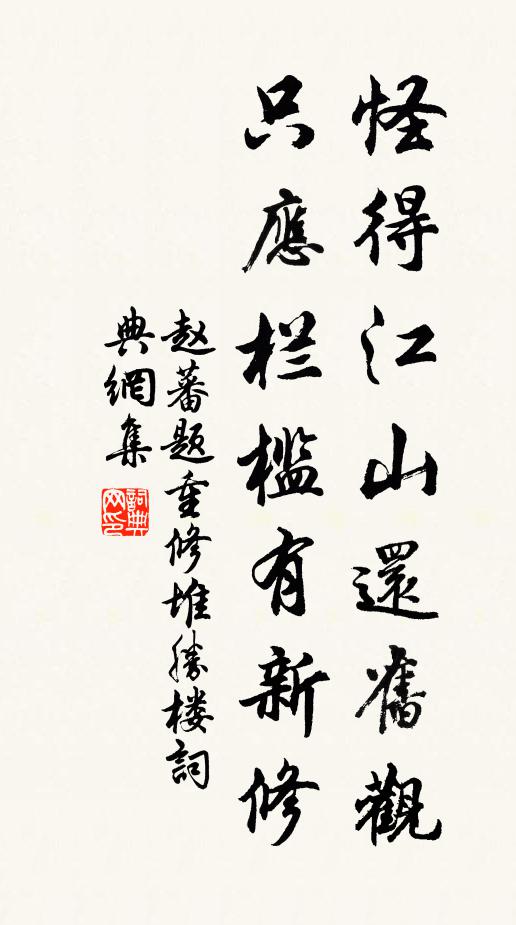 怪得江山還舊觀
只應栏槛有新修
赵蕃题重修堆勝楼詞
典網集
詞典网印